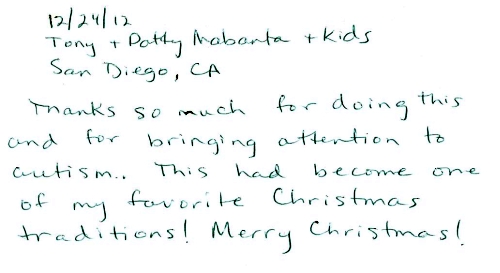 12/24/12
Tony + Patty Mabanta + kids
San Diego, CA
Thanks so much for doing this
and for bringing attention to
autism.. This had become one
of my favorite Christmas
traditions! Merry Christmas!